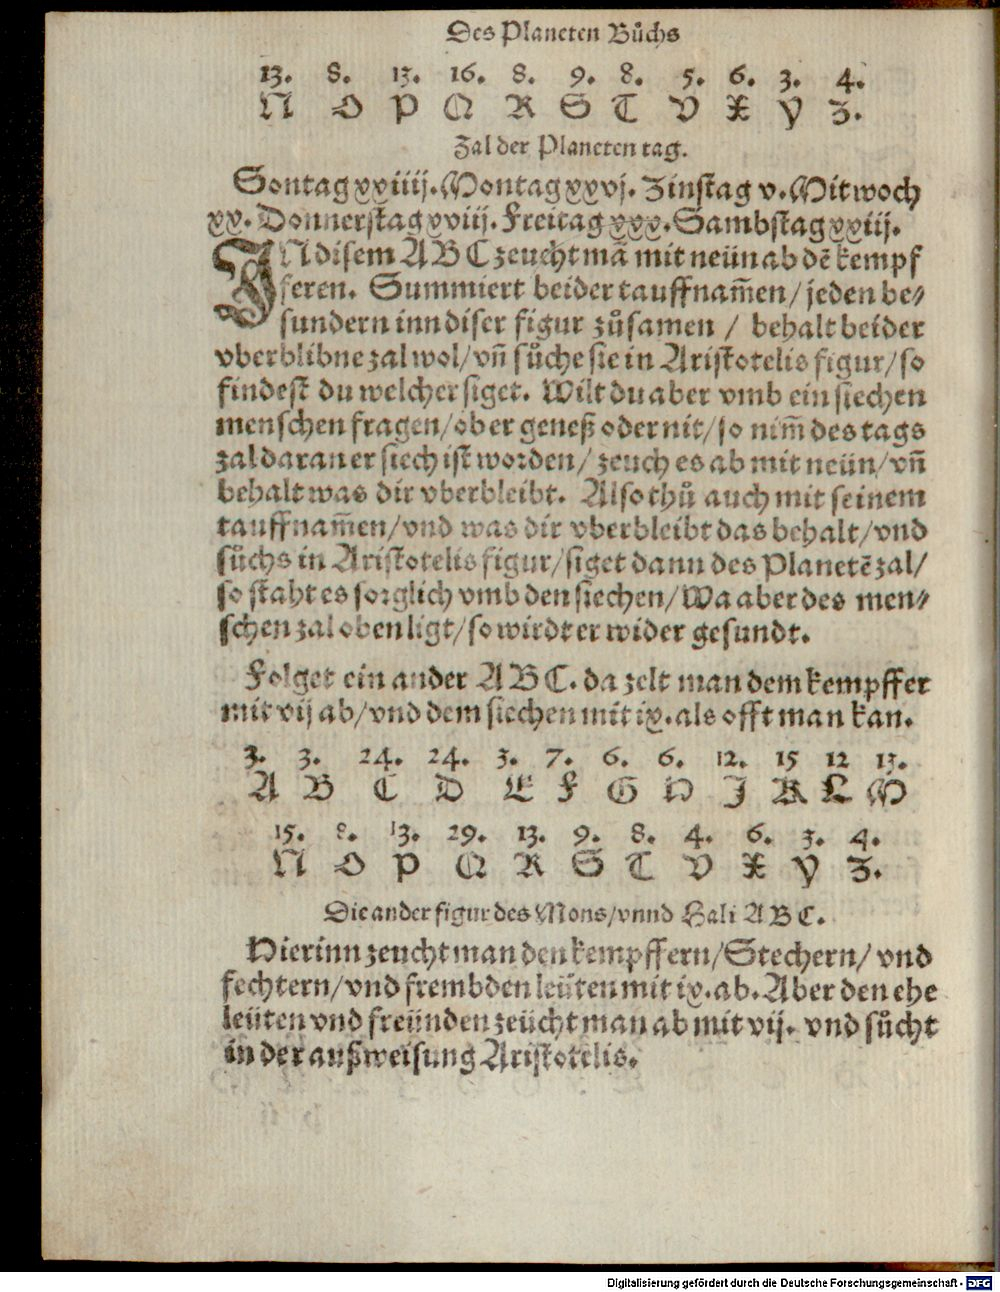 Des Planeten Bůchs
13. 8. 13. 16. 8. 9. 8. 5. 6. 3. 4.
N O P Q R S T V X Y Z.
Zal der Planeten tag.
Sontag xxiiij. Montag xxvj. Zinstag v. Mitwoch
xx. Donnerstag xviij. Freitag xxx. Sambstag xxiij.
IN disem A B C zeucht mã mit neün ab dẽ kempf
feren. Summiert beider tauffnam̃en / jeden be⸗
sundern inn diser figur zůsamen / behalt beider
vberblibne zal wol / vñ sůche sie in Aristotelis figur / so
findest du welcher siget. Wilt du aber vmb ein siechen
menschen fragen / ob er geneß oder nit / so nim̃ des tags
zal daran er siech ist worden / zeuch es ab mit neün / vñ
behalt was dir vberbleibt. Also thů auch mit seinem
tauffnam̃en / vnd was dir vberbleibt das behalt / vnd
sůchs in Aristotelis figur / siget dann des Planetẽ zal /
so staht es sorglich vmb den siechen / Wa aber des men⸗
schen zal oben ligt / so wirdt er wider gesundt.
Folget ein ander A B C. da zelt man dem kempffer
mit vij ab / vnd dem siechen mit ix. als offt man kan.
3. 3. 24. 24. 3. 7. 6. 6. 12. 15 12 13.
A B C D E F G H I K L M
15. 8. 13. 29. 13. 9. 8. 4. 6. 3. 4.
N O P Q R S T V X Y Z.
Die ander figur des Mons / vnnd Hali A B C.
Hierinn zeucht man den kempffern / Stechern / vnd
fechtern / vnd frembden leüten mit ix. ab. Aber den ehe
leüten vnd freünden zeücht man ab mit vij. vnd sůcht
in der außweisung Aristotelis.
Digitalisierung gefördert durch die Deutsche Forschungsgemeinschaft - DFG